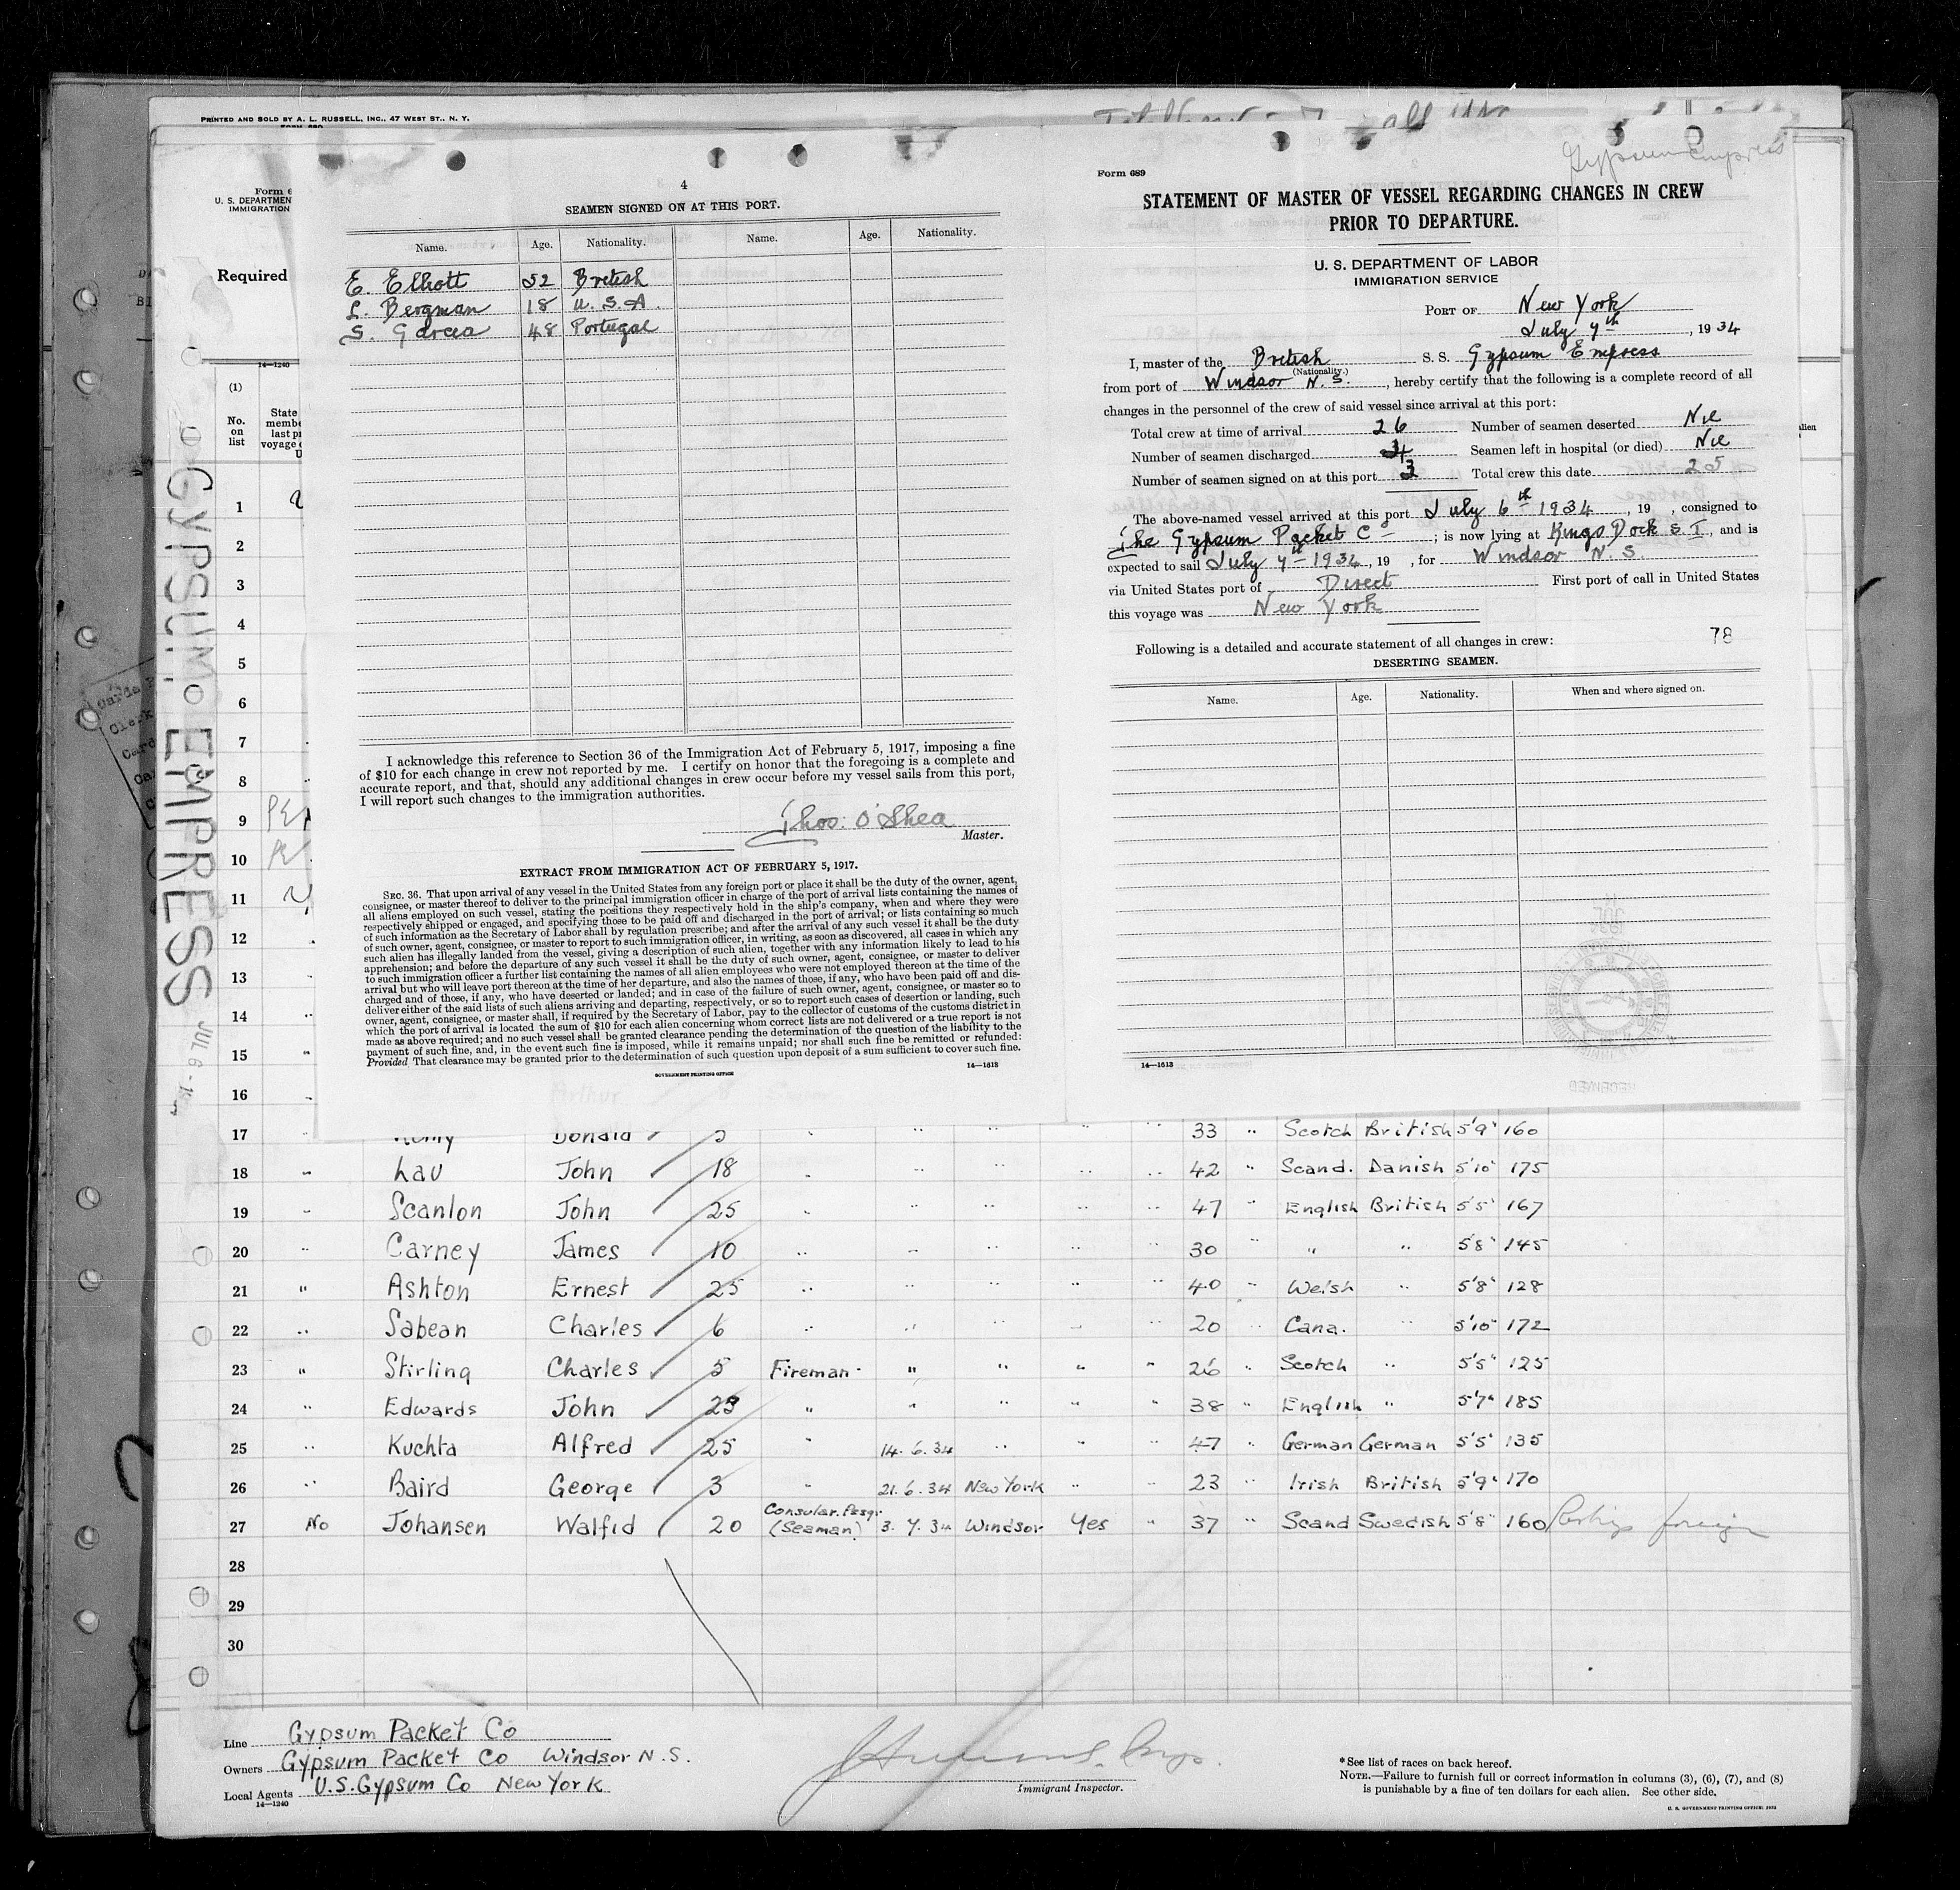 PRINTED AND SOLD BY A. L. RUSSELL, INC., 47 WEST ST., N. Y.
Form 6
U. S. DEPARTMEN
IMMIGRATION
Required
14—1240
(1)
No. on list
State
membe
last p
voyage
1
2
3
4
5
6
7
8
9
10
11
12
13
14
15
16
GYPSUM EMPRESS JUL 6 -
4
SEAMEN SIGNED ON AT THIS PORT.
Name. Age. Nationality. Name. Age. Nationality.
E. Elliott 52 British
L. Bergman 18 U. S. A.
S. Garcia 48 Portugal
I acknowledge this reference to Section 36 of the Immigration Act of February 5, 1917, imposing a fine
of $10 for each change in crew not reported by me. I certify on honor that the foregoing is a complete and
accurate report, and that, should any additional changes in crew occur before my vessel sails from this port,
I will report such changes to the immigration authorities.
Thos. O'Shea
Master.
EXTRACT FROM IMMIGRATION ACT OF FEBRUARY 5, 1917.
SEC. 36. That upon arrival of any vessel in the United States from any foreign port or place it shall be the duty of the owner, agent,
consignee, or master thereof to deliver to the principal immigration officer in charge of the port of arrival lists containing the names of
all aliens employed on such vessel, stating the positions they respectively hold in the ship's company, when and where they were
respectively shipped or engaged, and specifying those to be paid off and discharged in the port of arrival; or lists containing so much
of such information as the Secretary of Labor shall by regulation prescribe; and after the arrival of any such vessel it shall be the duty
of such owner, agent, consignee, or master to report to such immigration officer, in writing, as soon as discovered, all cases in which any
such alien has illegally landed from the vessel, giving a description of such alien, together with any information likely to lead to his
apprehension; and before the departure of any such vessel it shall be the duty of such owner, agent, consignee, or master to deliver
to such immigration officer a further list containing the names of all alien employees who were not employed thereon at the time of the
arrival but who will leave port thereon at the time of her departure, and also the names of those, if any, who have been paid off and dis-
charged and of those, if any, who have deserted or landed; and in case of the failure of such owner, agent, consignee, or master so to
deliver either of the said lists of such aliens arriving and departing, respectively, or so to report such cases of desertion or landing, such
owner, agent, consignee, or master shall, if required by the Secretary of Labor, pay to the collector of customs of the customs district in
which the port of arrival is located the sum of $10 for each alien concerning whom correct lists are not delivered or a true report is not
made as above required; and no such vessel shall be granted clearance pending the determination of the question of the liability to the
payment of such fine, and, in the event such fine is imposed, while it remains unpaid; nor shall such fine be remitted or refunded:
Provided That clearance may be granted prior to the determination of such question upon deposit of a sum sufficient to cover such fine.
GOVERNMENT PRINTING OFFICE 14—1613
Gypsum Empress
Form 689
STATEMENT OF MASTER OF VESSEL REGARDING CHANGES IN CREW
PRIOR TO DEPARTURE.
U. S. DEPARTMENT OF LABOR
IMMIGRATION SERVICE
PORT OF New York
July 7th, 1934
I, master of the British S. S. Gypsum Empress
(Nationality.)
from port of Windsor N. S., hereby certify that the following is a complete record of all
changes in the personnel of the crew of said vessel since arrival at this port:
Total crew at time of arrival 26 Number of seamen deserted Nil
Number of seamen discharged 4 Seamen left in hospital (or died) Nil
Number of seamen signed on at this port 3 Total crew this date 25
The above-named vessel arrived at this port July 6th 1934, 19 , consigned to
The Gypsum Packet Co ; is now lying at Kings Dock S. I., and is
expected to sail July 7th 1934, 19 , for Windsor N. S.
via United States port of Direct First port of call in United States
this voyage was New York
Following is a detailed and accurate statement of all changes in crew: 78
DESERTING SEAMEN.
Name. Age. Nationality. When and where signed on.
14—1613
RECEIVED
17 Donald 33 " Scotch British 5'9" 160
18 " Lau John 18 " " " " " 42 " Scand. Danish 5'10" 175
19 " Scanlon John 25 " " " " " 47 " English British 5'5" 167
20 " Carney James 10 " " " " " 30 " " " 5'8" 145
21 " Ashton Ernest 25 " " " " " 40 " Welsh " 5'8" 128
22 " Sabean Charles 6 " " " " " 20 " Cana. " 5'10" 172
23 " Stirling Charles 5 Fireman " " " " 26 " Scotch " 5'5" 125
24 " Edwards John 23 " " " " " 38 " English " 5'7" 185
25 " Kuchta Alfred 25 " 14. 6. 34 " " " 47 " German German 5'5" 135
26 " Baird George 3 " 21. 6. 34 New York " " 23 " Irish British 5'9" 170
27 No Johansen Walfid 20 Consular Pssgr. (Seaman) 3. 7. 34 Windsor Yes " 37 " Scand Swedish 5'8" 160 foreign
28
29
30
Line Gypsum Packet Co
Owners Gypsum Packet Co Windsor N. S.
Local Agents U.S. Gypsum Co New York
14—1240
Immigrant Inspector.
*See list of races on back hereof.
NOTE.—Failure to furnish full or correct information in columns (3), (6), (7), and (8)
is punishable by a fine of ten dollars for each alien. See other side.
U. S. GOVERNMENT PRINTING OFFICE: 1932